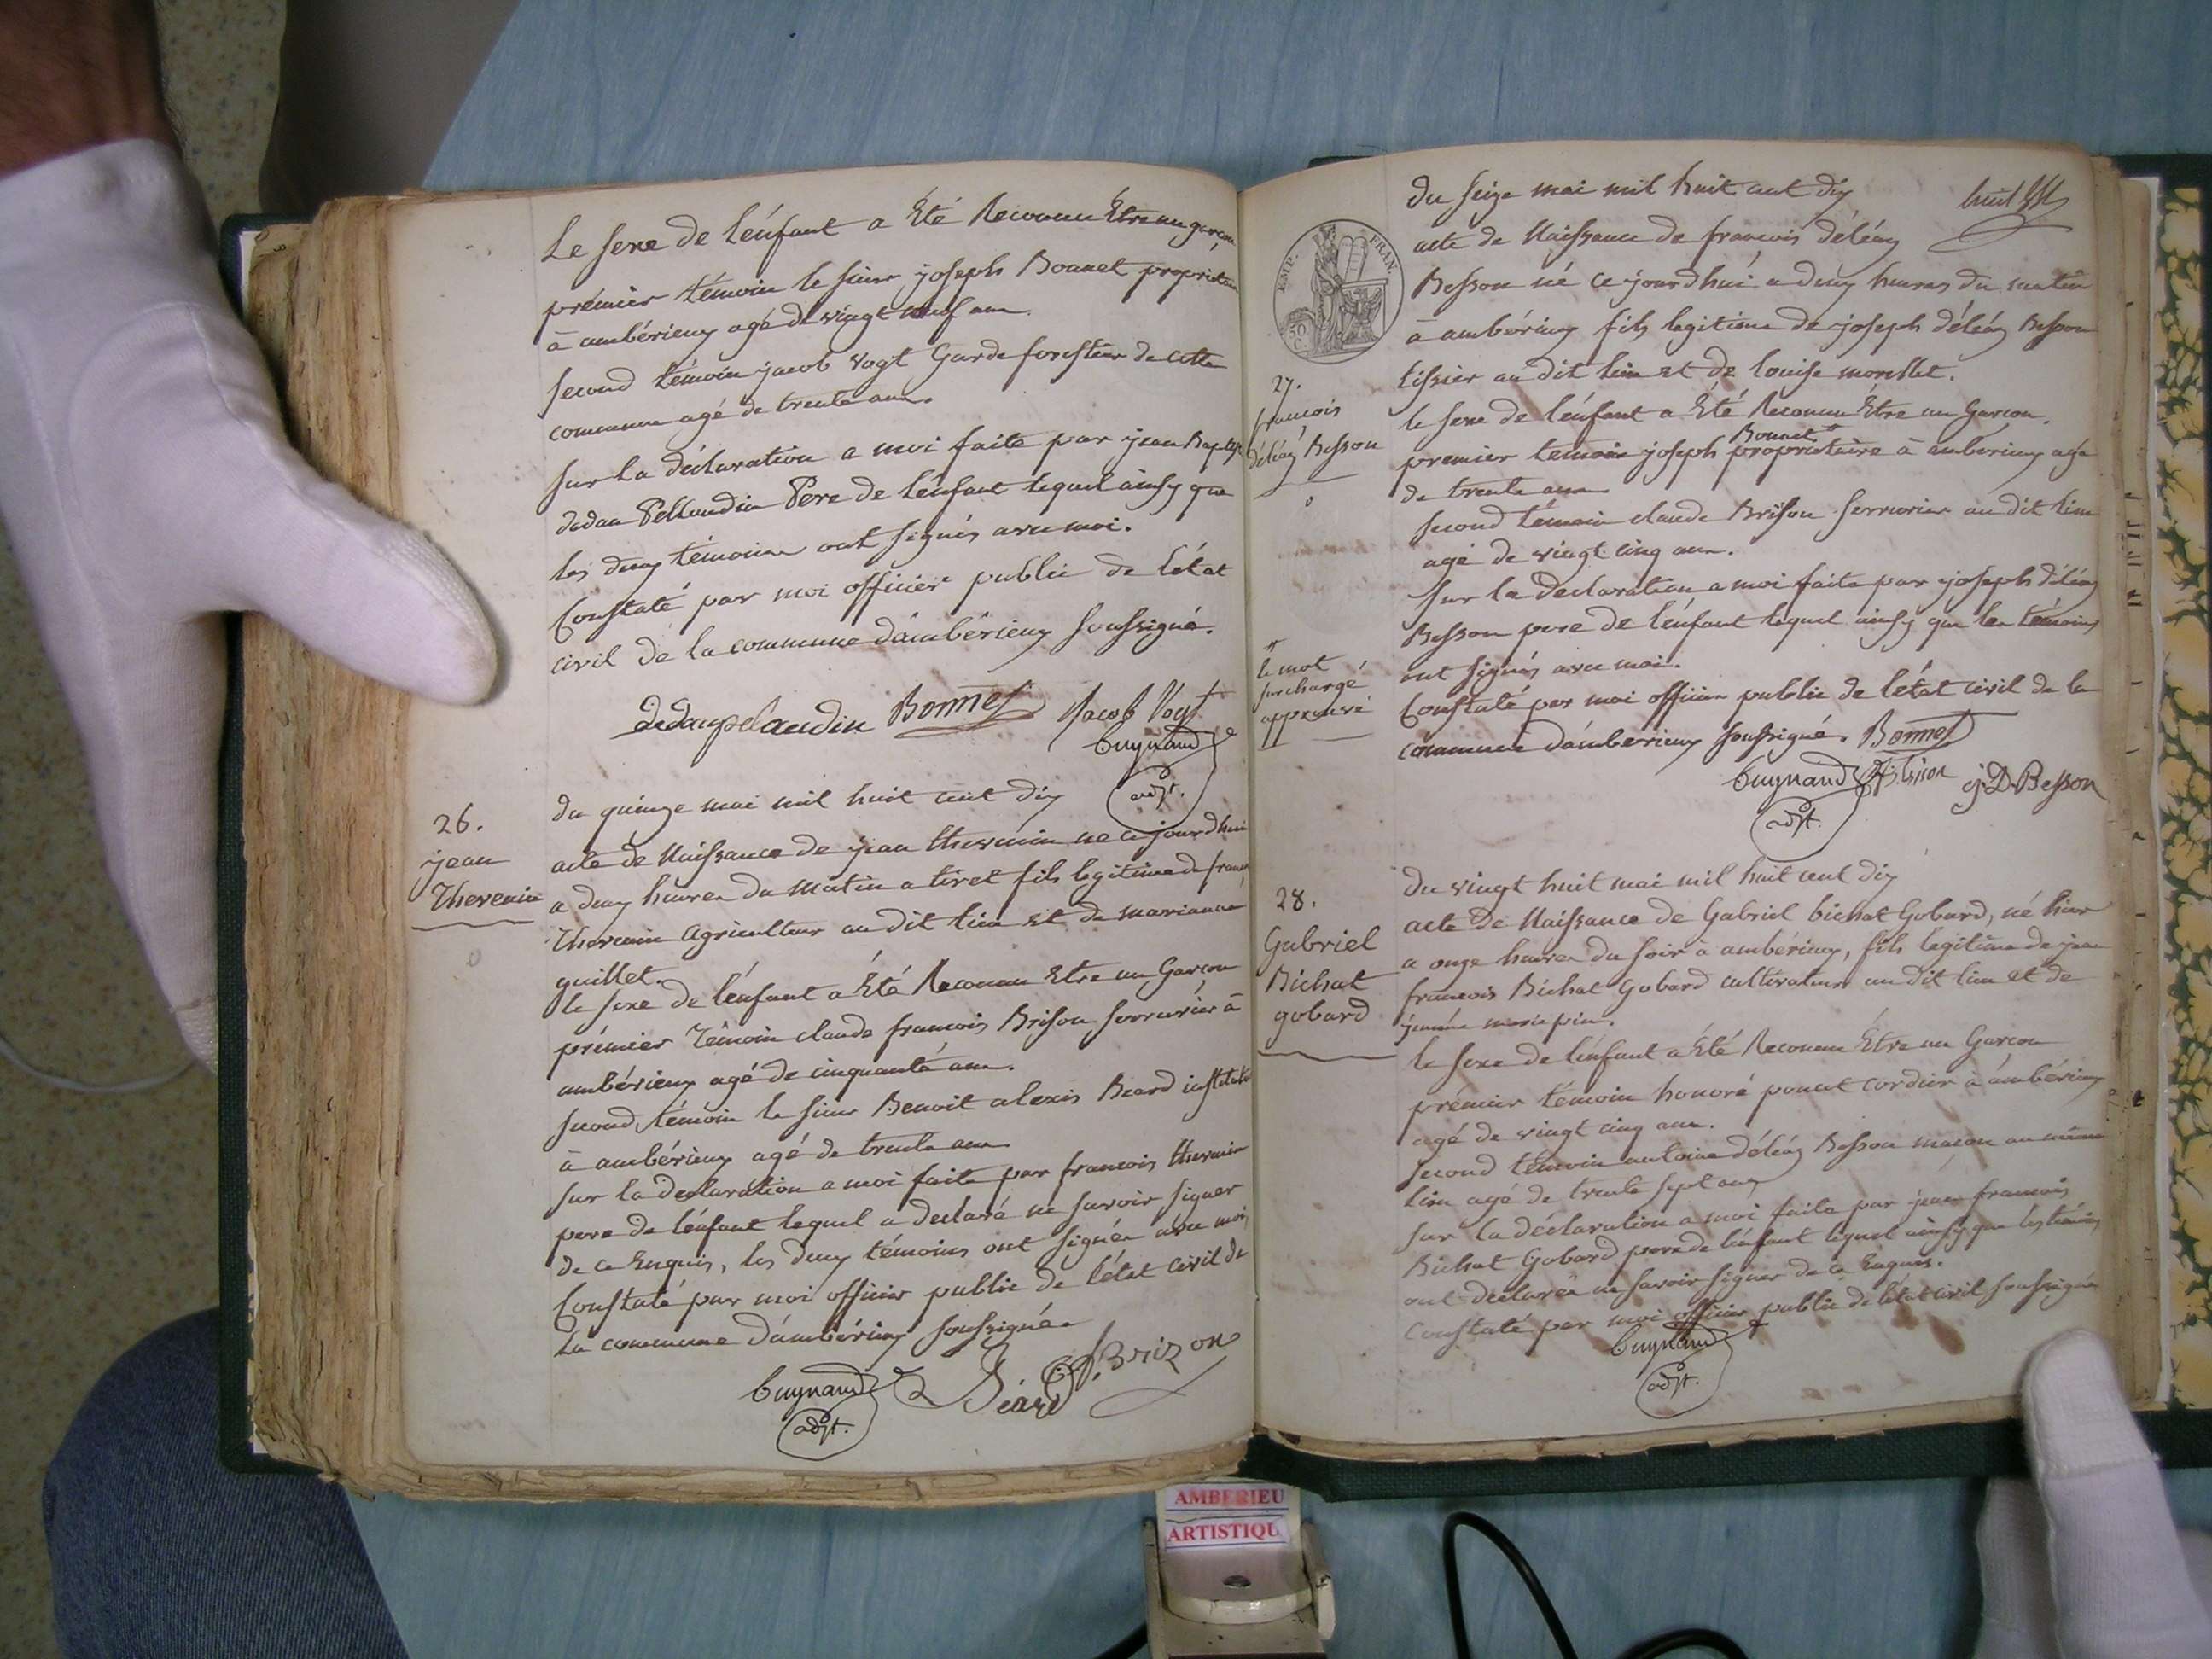 Le sexe de l'énfant a Eté Reconnu Etre un garçon
prémier témoin le sieur joseph Bonnet propriétaire
à ambérieux agé de vingt neuf ans.
second témoin jacob Vogt Garde forestier de cette
commune agé de trente ans.
sur la déclaration a moi faite par jean Baptiste
dedan Pellaudin Pere de l'énfant lequel ainsy que
les deux témoins ont signés avec moi.
Constaté par moi officier public de l'état
civil de la commune d'ambérieux soussigné.
Bonnet Jacob Vogt
Cuynaud
adjt.
26.
jean
Thevenin
du quinze mai mil huit cent dix
acte de Naissance de jean thevenin né ce jourdhui
a deux heures du matin a tiret fils legitime de francois
Thevenin agriculteur au dit lieu et de marianne
guillet.
le sexe de l'énfant a Eté Reconnu Etre un Garçon
prémier Témoin claude francois Brison serrurier à
ambérieux agé de cinquante ans.
second témoin le sieur Benoit alexis Beard
à ambérieux agé de trente ans
sur la declaration a moi faite par francois thevenin
pere de l'énfant lequel a declaré ne savoir signer
de ce Enquis, les deux témoins ont signés avec moi,
Constaté par moi officier public de l'état civil de
la commune d'ambérieux soussigné.
Cuynaud Béard C. f. Brizon
adjt.
du seize mai mil huit cent dix
EMP. FRAN.
50 C.
27.
francois
déléaz Besson
acte de Naissance de francois déléaz
Besson né ce jourdhui a deux heures du matin
à ambérieux fils legitime de joseph déléaz Besson
tissier au dit lieu et de louise morellet.
le sexe de l'énfant a Eté Reconnu Etre un Garcon.
Bonnet
premier temoin joseph propriétaire à amberieux agé
de trente ans
second témoin claude Brison serrurier au dit lieu
agé de vingt cinq ans.
sur la declaration a moi faite par joseph déléaz
Besson pere de l'énfant lequel ainsy que les témoins
ont signés avec moi.
le mot
surchargé
approuvé
Constaté par moi officier public de l'état civil de la
commune d'amberieux soussigné. Bonnet
Cuynaud j. D. Besson
adjt.
28.
Gabriel
Bichat
gobard
Du vingt huit mai mil huit cent dix
acte de Naissance de Gabriel bichat Gobard, né hier
a onze heures du soir à ambérieux, fils legitime de jean
francois Bichat Gobard cultivateur au dit lieu et de
marie pin.
le sexe de l'énfant a Eté Reconnu Etre un Garcon
prémier témoin honoré poncet cordier à ambérieux
agé de vingt cinq ans.
second témoin antoine déléaz Besson macon au même
lieu agé de trente sept ans
sur la déclaration a moi faite par jean francois
Bichat Gobard pere de l'énfant lequel ainsy que les témoins
ont declarés ne savoir signer de ce Enquis.
Constaté par moi officier public de l'état civil soussigné
Cuynaud
adjt.
AMBERIEU
ARTISTIQU